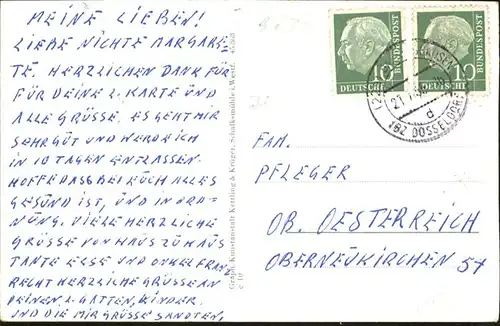 MEINE LIEBEN!
LIEBE NICHTE MARGARE
TE. HERZLICHEN DANK FÜR
FÜR DEINE L. KARTE UND
ALLE GRÜSSE. ES GEHT MIR
SEHR GUT UND WERDE ICH
IN 10 TAGEN ENTLASSEN.
HOFFE DASS BEI EUCH ALLES
GESUND IST, UND IN ORD-
NUNG. VIELE HERZLICHE
GRÜSSE VON HAUS ZU HAUS
TANTE ELSE UND ONKEL FRANZ
RECHT HERZLICHE GRÜSSE AN
DEINEN L. GATTEN, KINDER.
UND DIE MIR GRÜSSE SANDTEN,
Graph. Kunstanstalt Kettling & Krüger, Schalksmühle i. Westf.
10 DEUTSCHE BUNDESPOST
10 DEUTSCHE BUNDESPOST
d
BZ DÜSSELDORF
FAM.
PFLEGER
OB. OESTERREICH
OBERNEUKIRCHEN 57